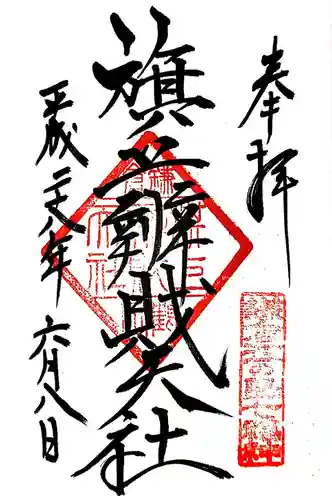 奉拝
旗上辨財天社
平成二十八年六月八日